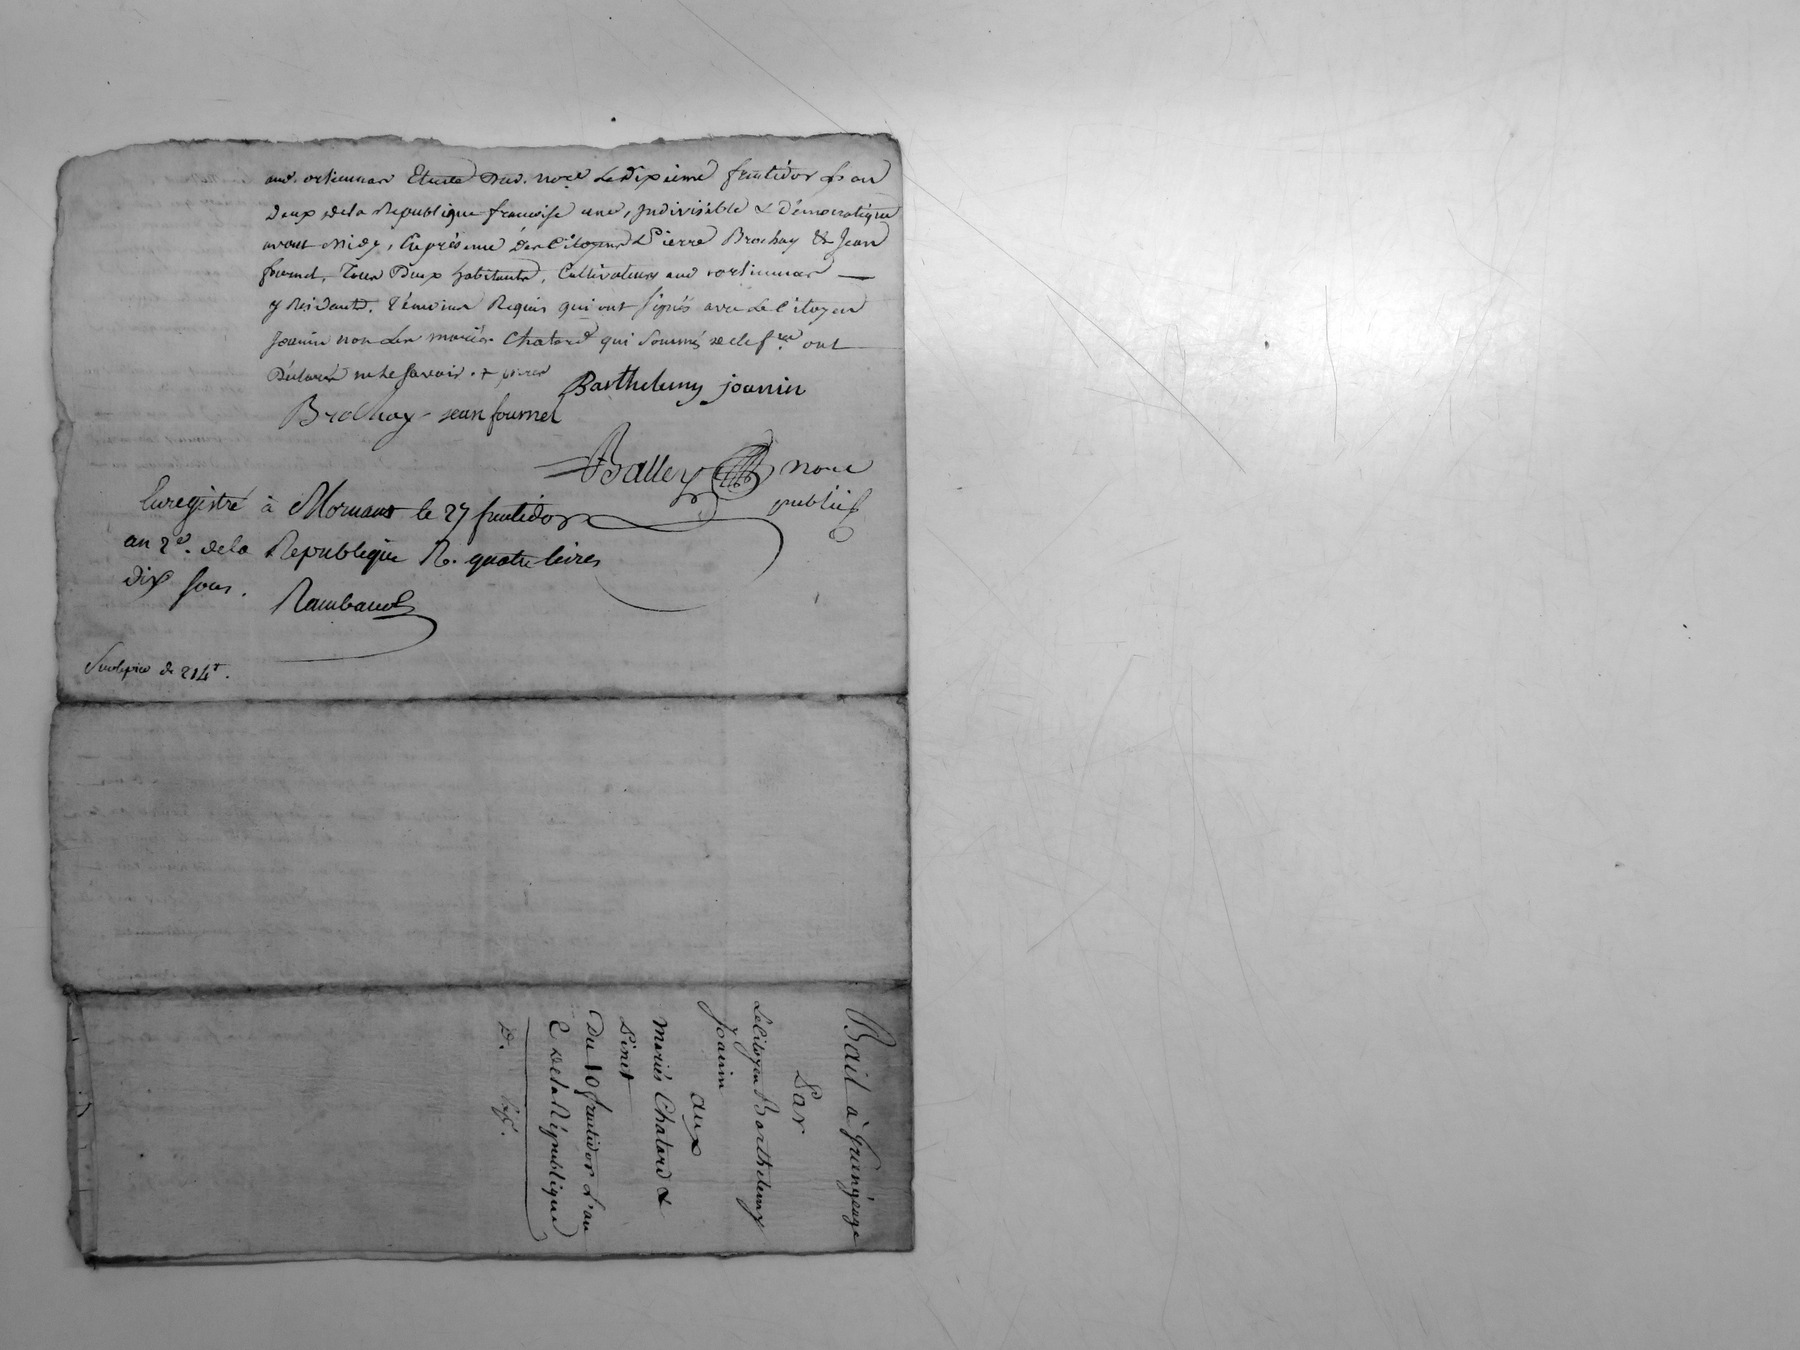 Etude dud. no.re Le Dixieme fruitidor L'an
Deux dela Republique francoise une, jndivisible & Démocratique
avant midy, En présence des Citoyens Pierre Brochay & Jean
fournel, Tous Deux habitants, Cultivateurs
y Residants, Témoins Requis qui ont signés avec Le Citoyen
Joanin non Les mariés Chatard qui sommés de le f.re ont
Déclarés ne Le savoir. + pierre
Barthelemy joanin
Brochay jean fournel
Balley nore
public
Enregistré à Mornant le 27 fructidor
an 2e. dela Republique R. quatre livres
dix sous.
Rambaud
de 214 t.
Bail à Grangeage
Par
Le Citoyen Barthelemy
Joanin
aux
Mariés Chatard &
Pinet
Du 10 fruitidor L'an
2 dela République